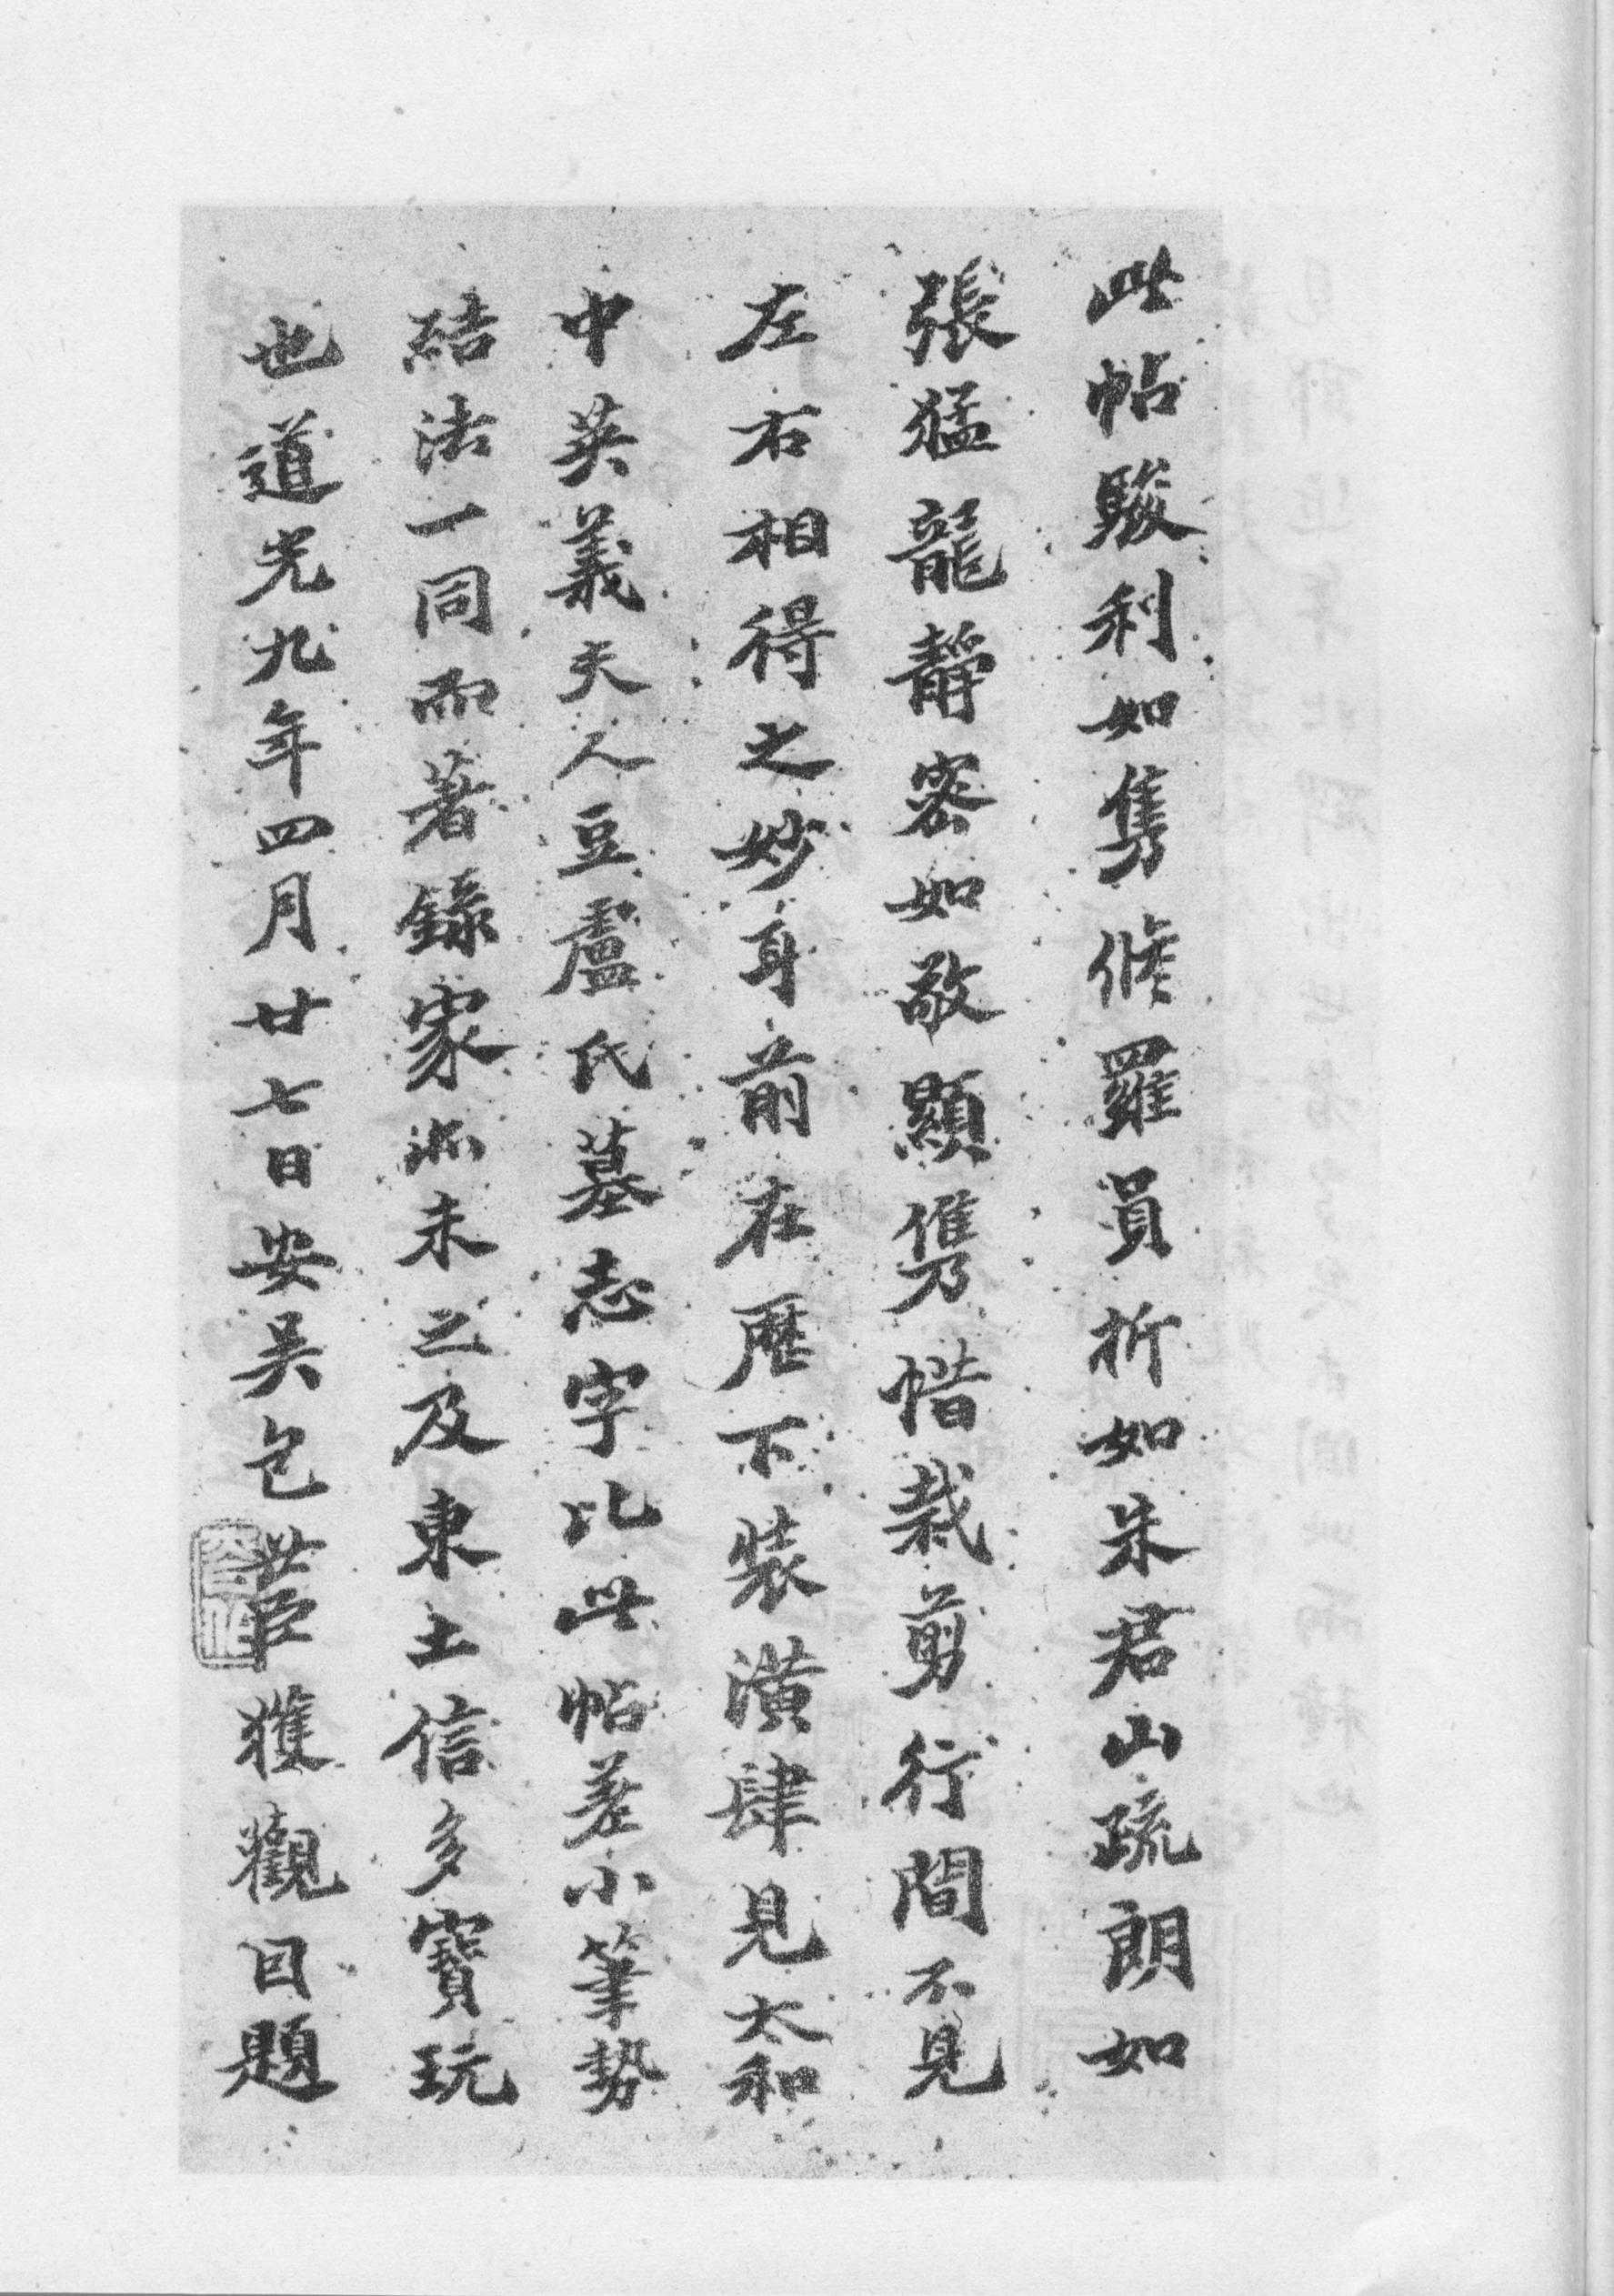 此帖駿利如雋脩羅員折如朱君山疏朗如
張猛龍靜密如敬顯儁惜栽剪行間不見
左右相得之妙耳前在歷下裝潢肆見太和
中英義夫人豆盧氏墓志字比此帖差小筆勢
結法一同而著錄家亦未之及東土信多寶玩
也道光九年四月廿七日安吳包世臣獲觀因題